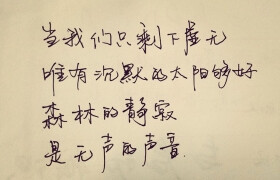 当我们只剩下虚无
唯有沉默的太阳够好
森林的静寂
是无声的声音